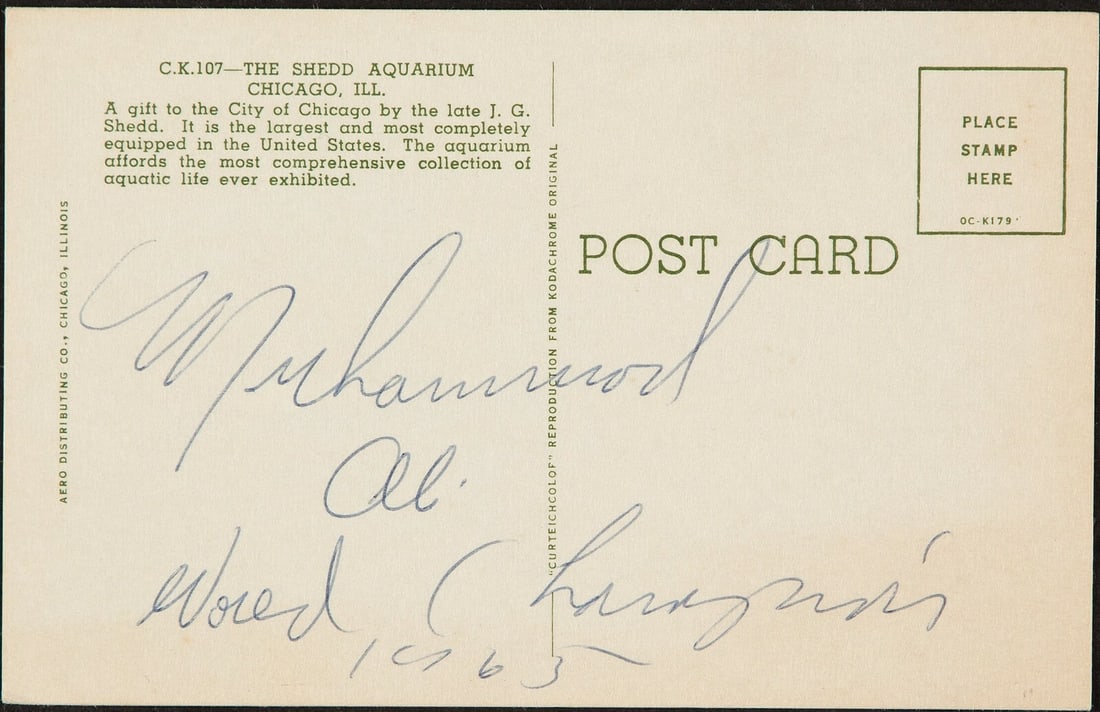 C.K.107—THE SHEDD AQUARIUM
CHICAGO, ILL.
A gift to the City of Chicago by the late J. G.
Shedd. It is the largest and most completely
equipped in the United States. The aquarium
affords the most comprehensive collection of
aquatic life ever exhibited.
AERO DISTRIBUTING CO., CHICAGO, ILLINOIS
"CURTEICHCOLOR" REPRODUCTION FROM KODACHROME ORIGINAL
POST CARD
PLACE
STAMP
HERE
OC-K179
Muhammad
Ali
World Champion
1965